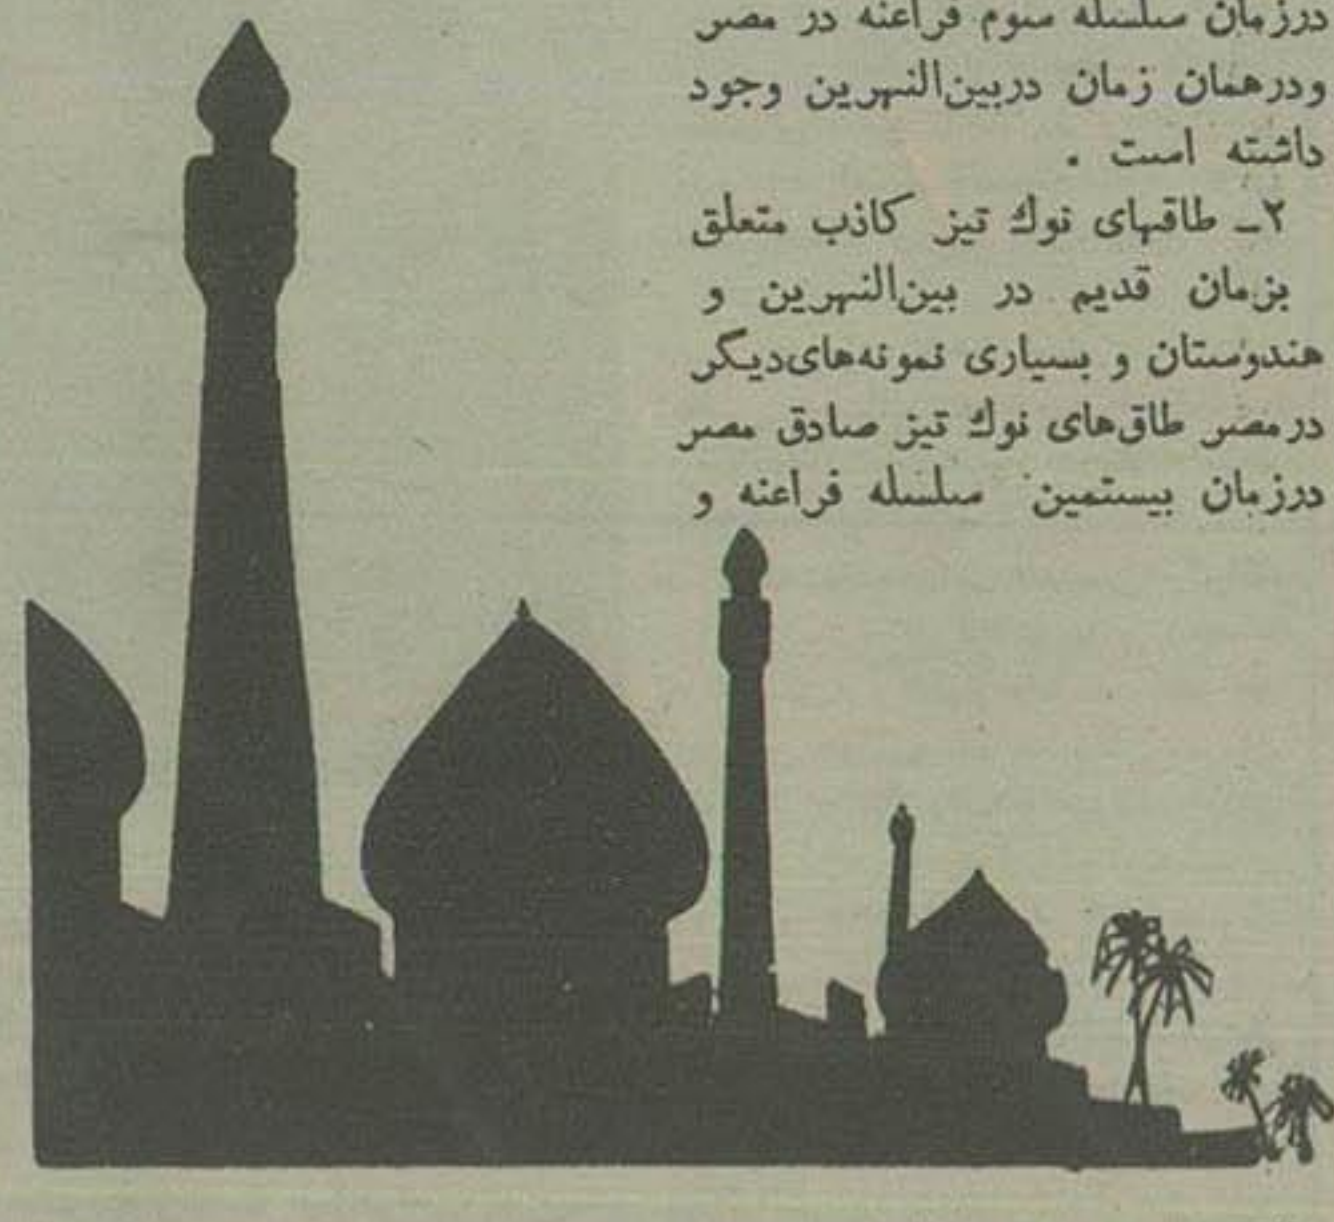 درزمان سلسله سوم فراعنه در مصر
ودرهمان زمان دربین‌النهرین وجود
داشته است .
۲ـ طاقهای نوك تیز کاذب متعلق
بزمان قدیم در بین‌النهرین و
هندوستان و بسیاری نمونه‌های‌دیگر
درمصر طاق‌های نوك تیز صادق مصر
درزمان بیستمین سلسله فراعنه و